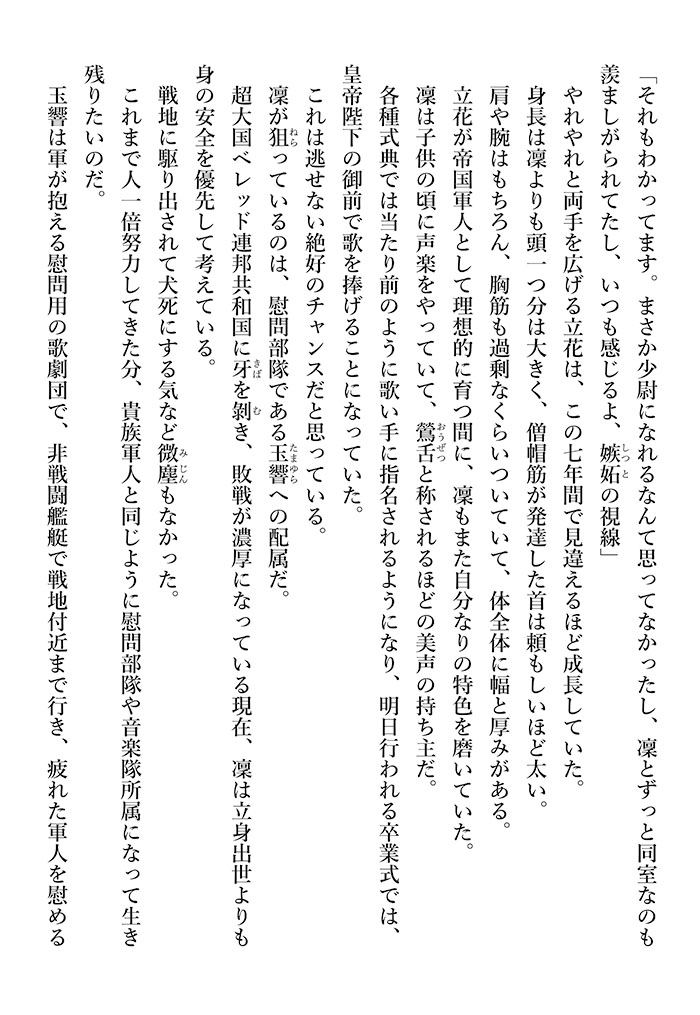 「それもわかってます。まさか少尉になれるなんて思ってなかったし、凜とずっと同室なのも
羨ましがられてたし、いつも感じるよ、嫉妬の視線」
やれやれと両手を広げる立花は、この七年間で見違えるほど成長していた。
身長は凜よりも頭一つ分は大きく、僧帽筋が発達した首は頼もしいほど太い。
肩や腕はもちろん、胸筋も過剰なくらいついていて、体全体に幅と厚みがある。
立花が帝国軍人として理想的に育つ間に、凜もまた自分なりの特色を磨いていた。
凜は子供の頃に声楽をやっていて、鶯舌と称されるほどの美声の持ち主だ。
各種式典では当たり前のように歌い手に指名されるようになり、明日行われる卒業式では、
皇帝陛下の御前で歌を捧げることになっていた。
これは逃せない絶好のチャンスだと思っている。
凜が狙っているのは、慰問部隊である玉響への配属だ。
超大国ベレッド連邦共和国に牙を剝き、敗戦が濃厚になっている現在、凜は立身出世よりも
身の安全を優先して考えている。
戦地に駆り出されて犬死にする気など微塵もなかった。
これまで人一倍努力してきた分、貴族軍人と同じように慰問部隊や音楽隊所属になって生き
残りたいのだ。
玉響は軍が抱える慰問用の歌劇団で、非戦闘艦艇で戦地付近まで行き、疲れた軍人を慰める